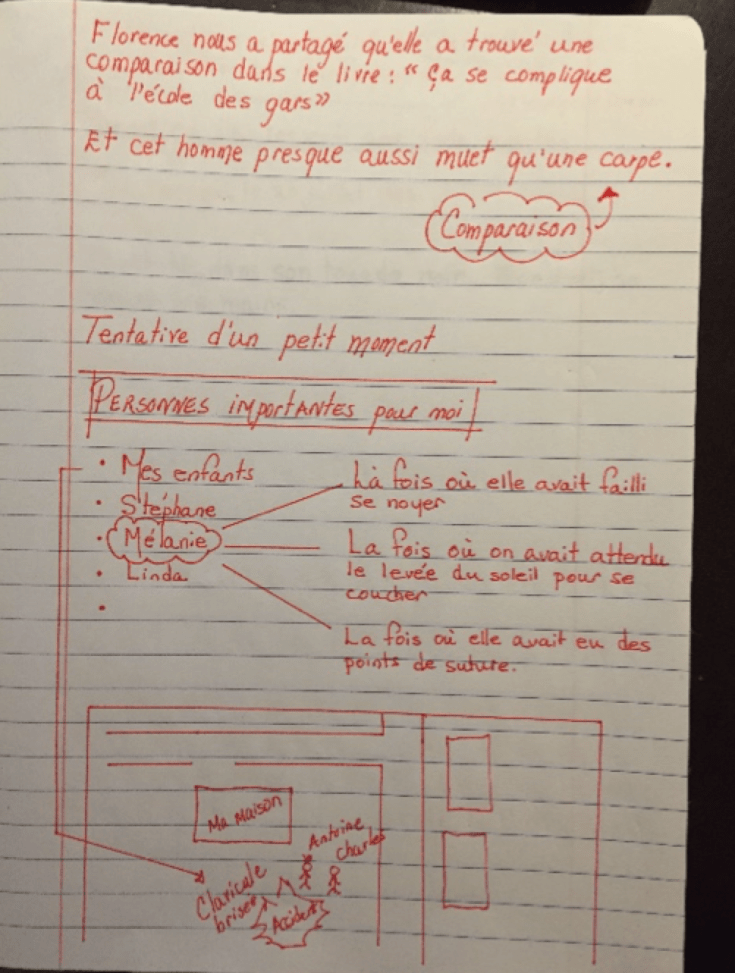 Florence nous a partagé qu'elle a trouvé une
comparaison dans le livre : "Ça se complique
à l'école des gars»
Et cet homme presque aussi muet qu'une carpe.
Comparaison
Tentative d'un petit moment
PERSONNES importantes pour moi
• Mes enfants
• Stéphane
• Mélanie
• Linda
•
La fois où elle avait failli
se noyer
La fois où on avait attendu
le levée du soleil pour se
coucher
La fois où elle avait eu des
points de suture.
Ma maison
Antoine
Charles
Clavicule
briser
Accident